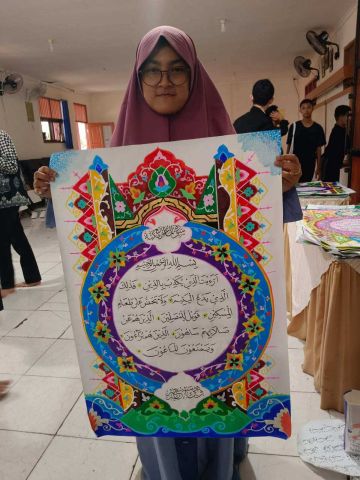 بِسْمِ اللهِ الرَّحْمٰنِ الرَّحِيْمِ
أَرَءَيْتَ الَّذِي يُكَذِّبُ بِالدِّينِ • فَذَلِكَ
الَّذِي يَدُعُّ الْيَتِيمَ • وَلَا يَحُضُّ عَلَى طَعَامِ
الْمِسْكِينِ • فَوَيْلٌ لِلْمُصَلِّينَ • الَّذِينَ هُمْ عَنْ
صَلَاتِهِمْ سَاهُونَ • الَّذِينَ هُمْ يُرَاءُونَ
وَيَمْنَعُونَ الْمَاعُونَ